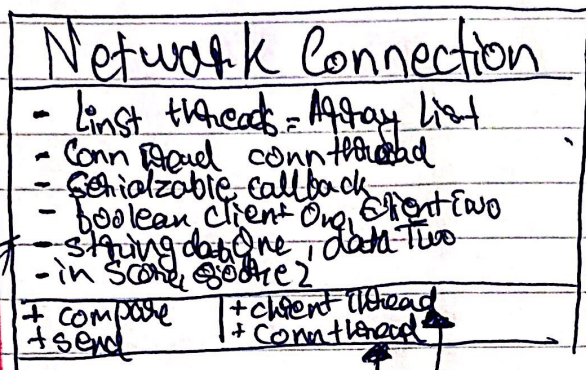 Network Connection
- Linst threads = Array List
- Conn thread connthread
- Serialzable callback
- boolean client One, Client two
- string dataOne, data Two
- in Score, score 2
+ compare + client thread
+ send + Connthread